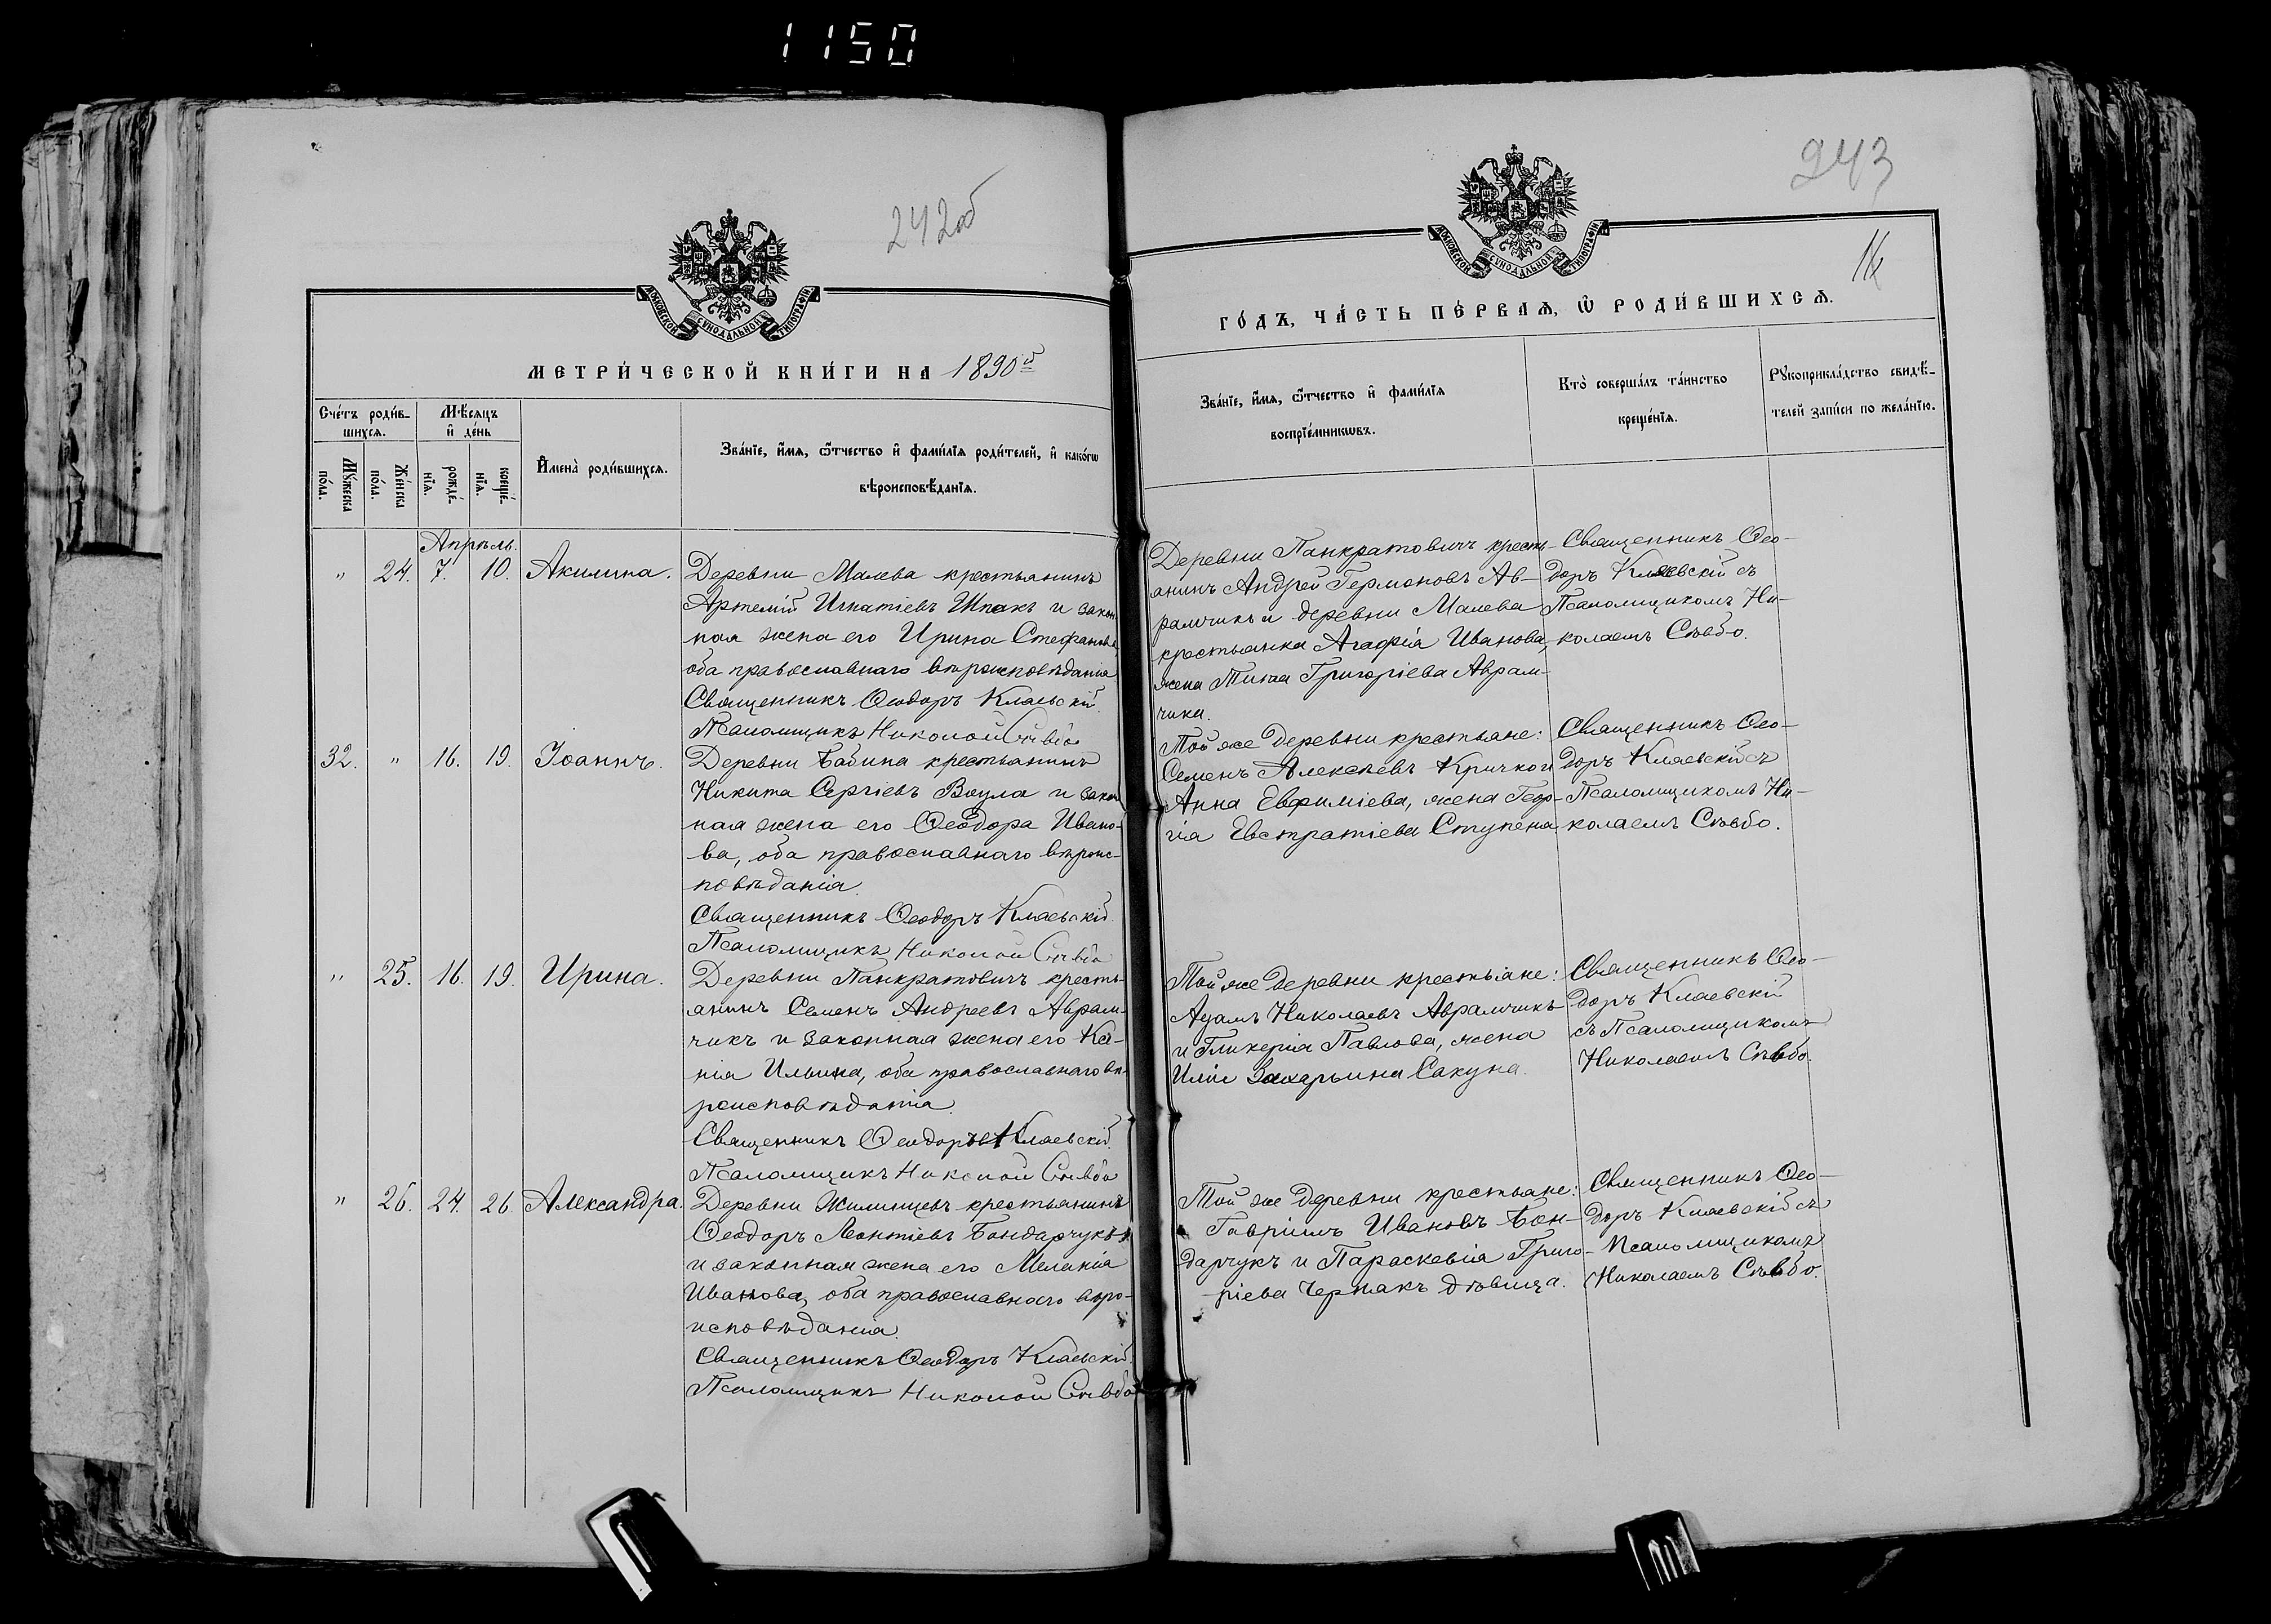 1150
242об
МОСКОВСКОЙ СѴНОДАЛЬНОЙ ТИПОГРАФІИ
МЕТРИ́ЧЕСКОЙ КНИ́ГИ НА 1890й
Сче́тъ роди́в-
шихсѧ.
Мѣ́сяцъ
и҆ де́нь
Мꙋ́жеска
по́ла.
Же́нска
по́ла.
рожде́-
нїѧ.
креще́-
нїѧ.
И҆мена̀ роди́вшихсѧ.
Зва́нїе, и҆́мѧ, ѻ҆́тчество и҆ фами́лїѧ роди́телей, и҆ како́гѡ
вѣроисповѣ́данїѧ.
Апрѣль.
" 24. 7. 10. Акилина.
Деревни Малева крестьянинъ
Артемій Игнатіевъ Шпакъ и закон
ная жена его Ирина Стефанова
оба православнаго вѣроисповѣданія
Священникъ Ѳеодоръ Клаевскій.
Псаломщикъ Николай Сѣвбо
32. " 16. 19. Іоаннъ.
Деревни Бабина крестьянинъ
Никита Сергіевъ Воула и закон
ная жена его Ѳеодора Ивано-
ва, оба православнаго вѣроис-
повѣданія.
Священникъ Ѳеодоръ Клаевскій.
Псаломщикъ Николай Сѣвбо
" 25. 16. 19. Ирина.
Деревни Панкратовичъ кресть-
янинъ Семенъ Андреевъ Аврам-
чикъ и законная жена его Ксе-
нія Ильина, оба православнаго вѣ-
роисповѣданія.
Священникъ Ѳеодоръ Клаевскій.
Псаломщикъ Николай Сѣвбо
" 26. 24. 26. Александра.
Деревни Жилинцевъ крестьянинъ
Ѳеодоръ Леонтіевъ Бондарчукъ
и законная жена его Меланія
Иванова, оба православнаго вѣро-
исповѣданія.
Священникъ Ѳеодоръ Клаевскій.
Псаломщикъ Николай Сѣвбо
243
МОСКОВСКОЙ СѴНОДАЛЬНОЙ ТИПОГРАФІИ
ГО́ДЪ, ЧА́СТЬ ПЕ́РВАѦ, Ѽ РОДИ́ВШИХСѦ.
Зва́нїе, и҆́мѧ, ѻ҆́тчество и҆ фами́лїѧ
воспрїе́мникѡвъ.
Кто̀ соверша́лъ та́инство
креще́нїѧ.
Рꙋкоприкла́дство свидѣ́-
телей за́писи по жела́нїю.
Деревни Панкратовичъ кресть-
янинъ Андрей Германовъ Ав-
рамчикъ и деревни Малева
крестьянка Агафія Иванова,
жена Григоріева Аврам-
чика.
Священникъ Ѳео-
доръ Клаевскій съ
Псаломщикомъ Ни-
колаемъ Сѣвбо.
Той же деревни крестьяне:
Семенъ Алексѣевъ Кричко и
Анна Евфиміева, жена Геор-
гія Евстратіева Ступена
Священникъ Ѳео-
доръ Клаевскій съ
Псаломщикомъ Ни-
колаемъ Сѣвбо.
Той же деревни крестьяне:
Адамъ Николаевъ Аврамчикъ
и Гликерія Павлова, жена
Иліи Захарьина Сакуна.
Священникъ Ѳео-
доръ Клаевскій
съ Псаломщикомъ
Николаемъ Сѣвбо.
Той же деревни крестьяне:
Гавріилъ Ивановъ Бон-
дарчукъ и Параскевія Григо-
ріева Чернакъ дѣвица.
Священникъ Ѳео-
доръ Клаевскій съ
Псаломщикомъ
Николаемъ Сѣвбо.